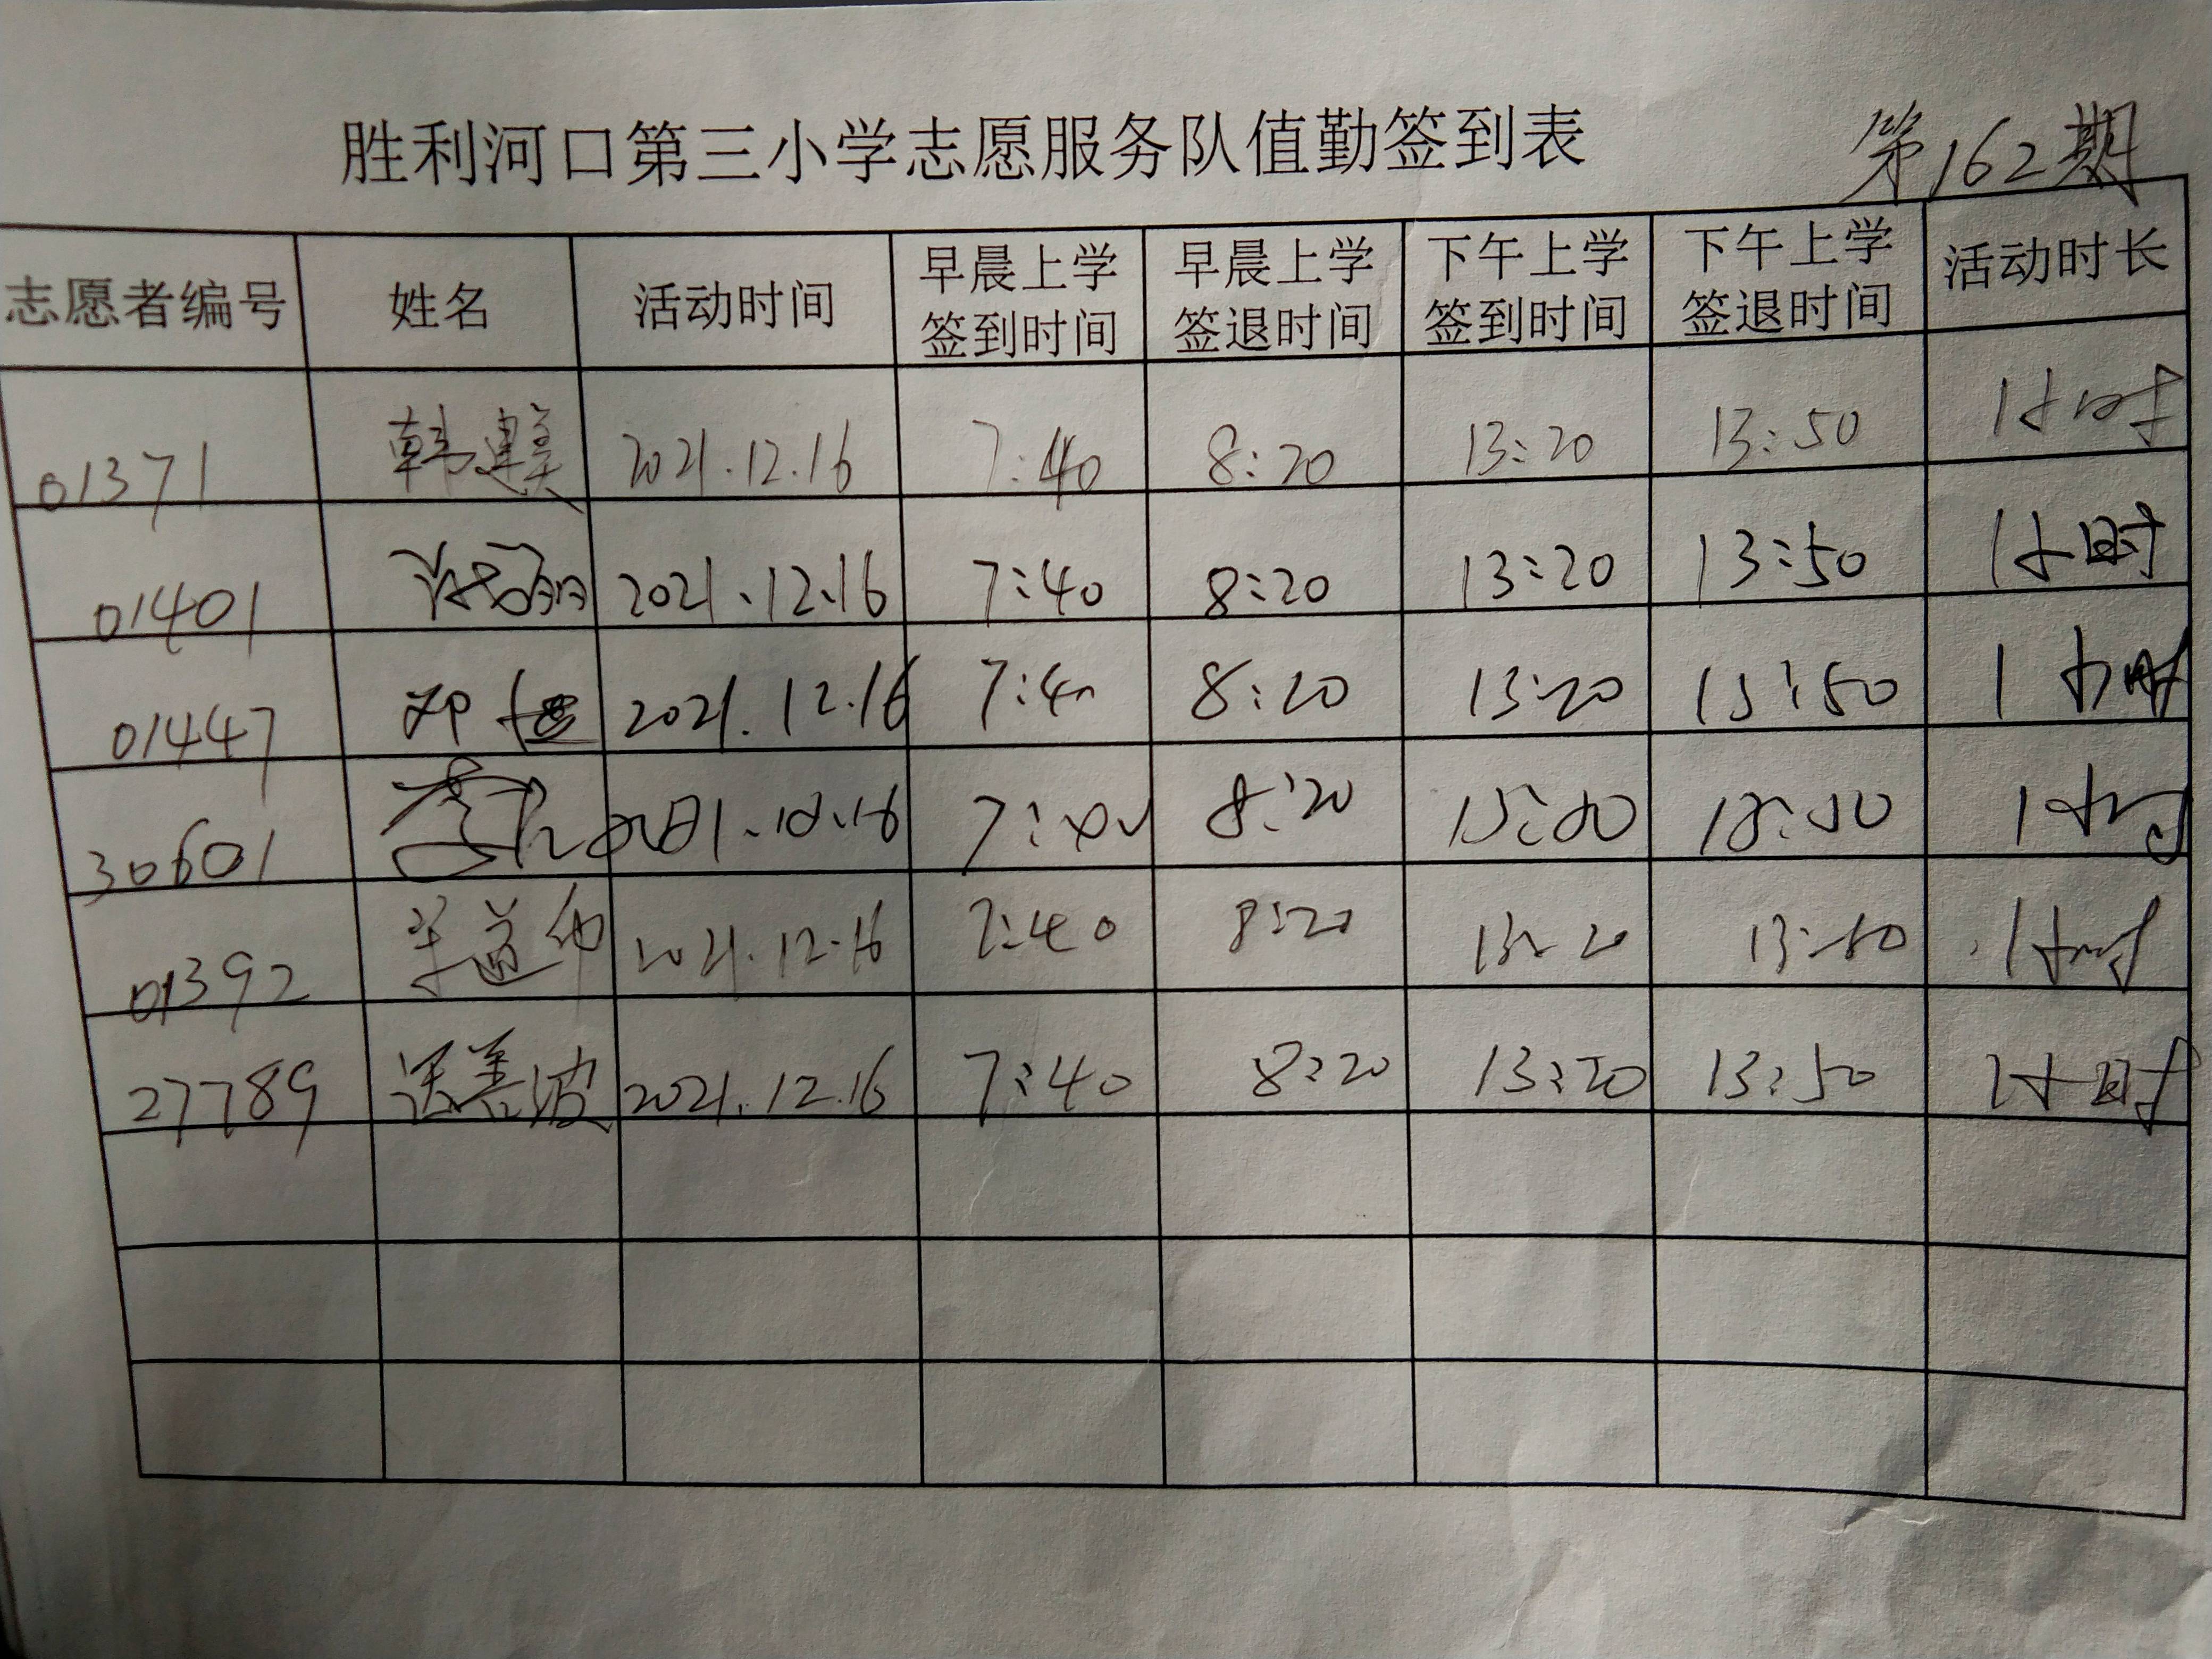 胜利河口第三小学志愿服务队值勤签到表 第162期
志愿者编号 姓名 活动时间 早晨上学签到时间 早晨上学签退时间 下午上学签到时间 下午上学签退时间 活动时长
01371 韩建美 2021.12.16 7:40 8:20 13:20 13:50 1小时
01401 2021.12.16 7:40 8:20 13:20 13:50 1小时
01447 2021.12.16 8:20 13:20 13:50 1小时
30601 8:20 1小时
01392 2021.12.16 7:40 8:20 13:20 13:50 1小时
27789 2021.12.16 7:40 8:20 13:20 13:50 1小时